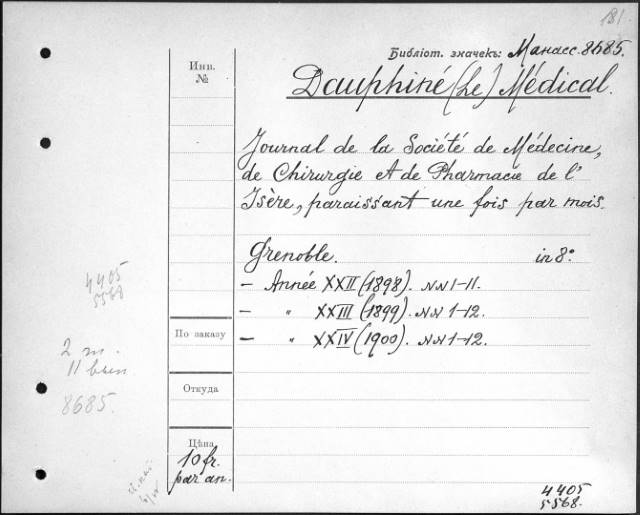 181
Библіот. значекъ: Манасс. 8685.
Инв.
№
Dauphiné (Le) Médical.
Journal de la Société de Médecine,
de Chirurgie et de Pharmacie de l'
Isère, paraissant une fois par mois.
Grenoble. in 8°
– Année XXII (1898). NN 1-11.
– " XXIII (1899). NN 1-12.
– " XXIV (1900). NN 1-12.
4405
5568
По заказу
2 т.
11 вып
8685.
Откуда
Цѣна
10 fr.
par an.
4405
5568.